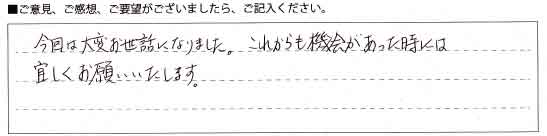 ■ご意見、ご感想、ご要望がございましたら、ご記入ください。
今回は大変お世話になりました。これからも機会があった時には
宜しくお願いいたします。